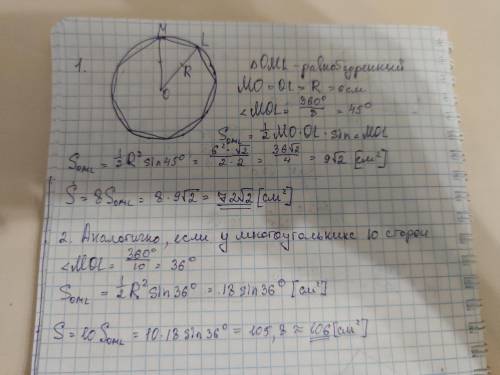 M L
1.
R
O
ΔOML - равнобедренный
MO = OL = R = 6см
<MOL = 360°/8 = 45°
S_OML = 1/2 MO·OL·sin<MOL
S_OML = 1/2 R² sin45° = 6²·√2/2·2 = 36√2/4 = 9√2 [см²]
S = 8S_OML = 8·9√2 = 72√2 [см²]
2. Аналогично, если у многоугольника 10 сторон
<MOL = 360°/10 = 36°
S_OML = 1/2 R² sin36° = 18 sin36° [см²]
S = 10 S_OML = 10·18 sin36° = 105,8 ≈ 106 [см²]